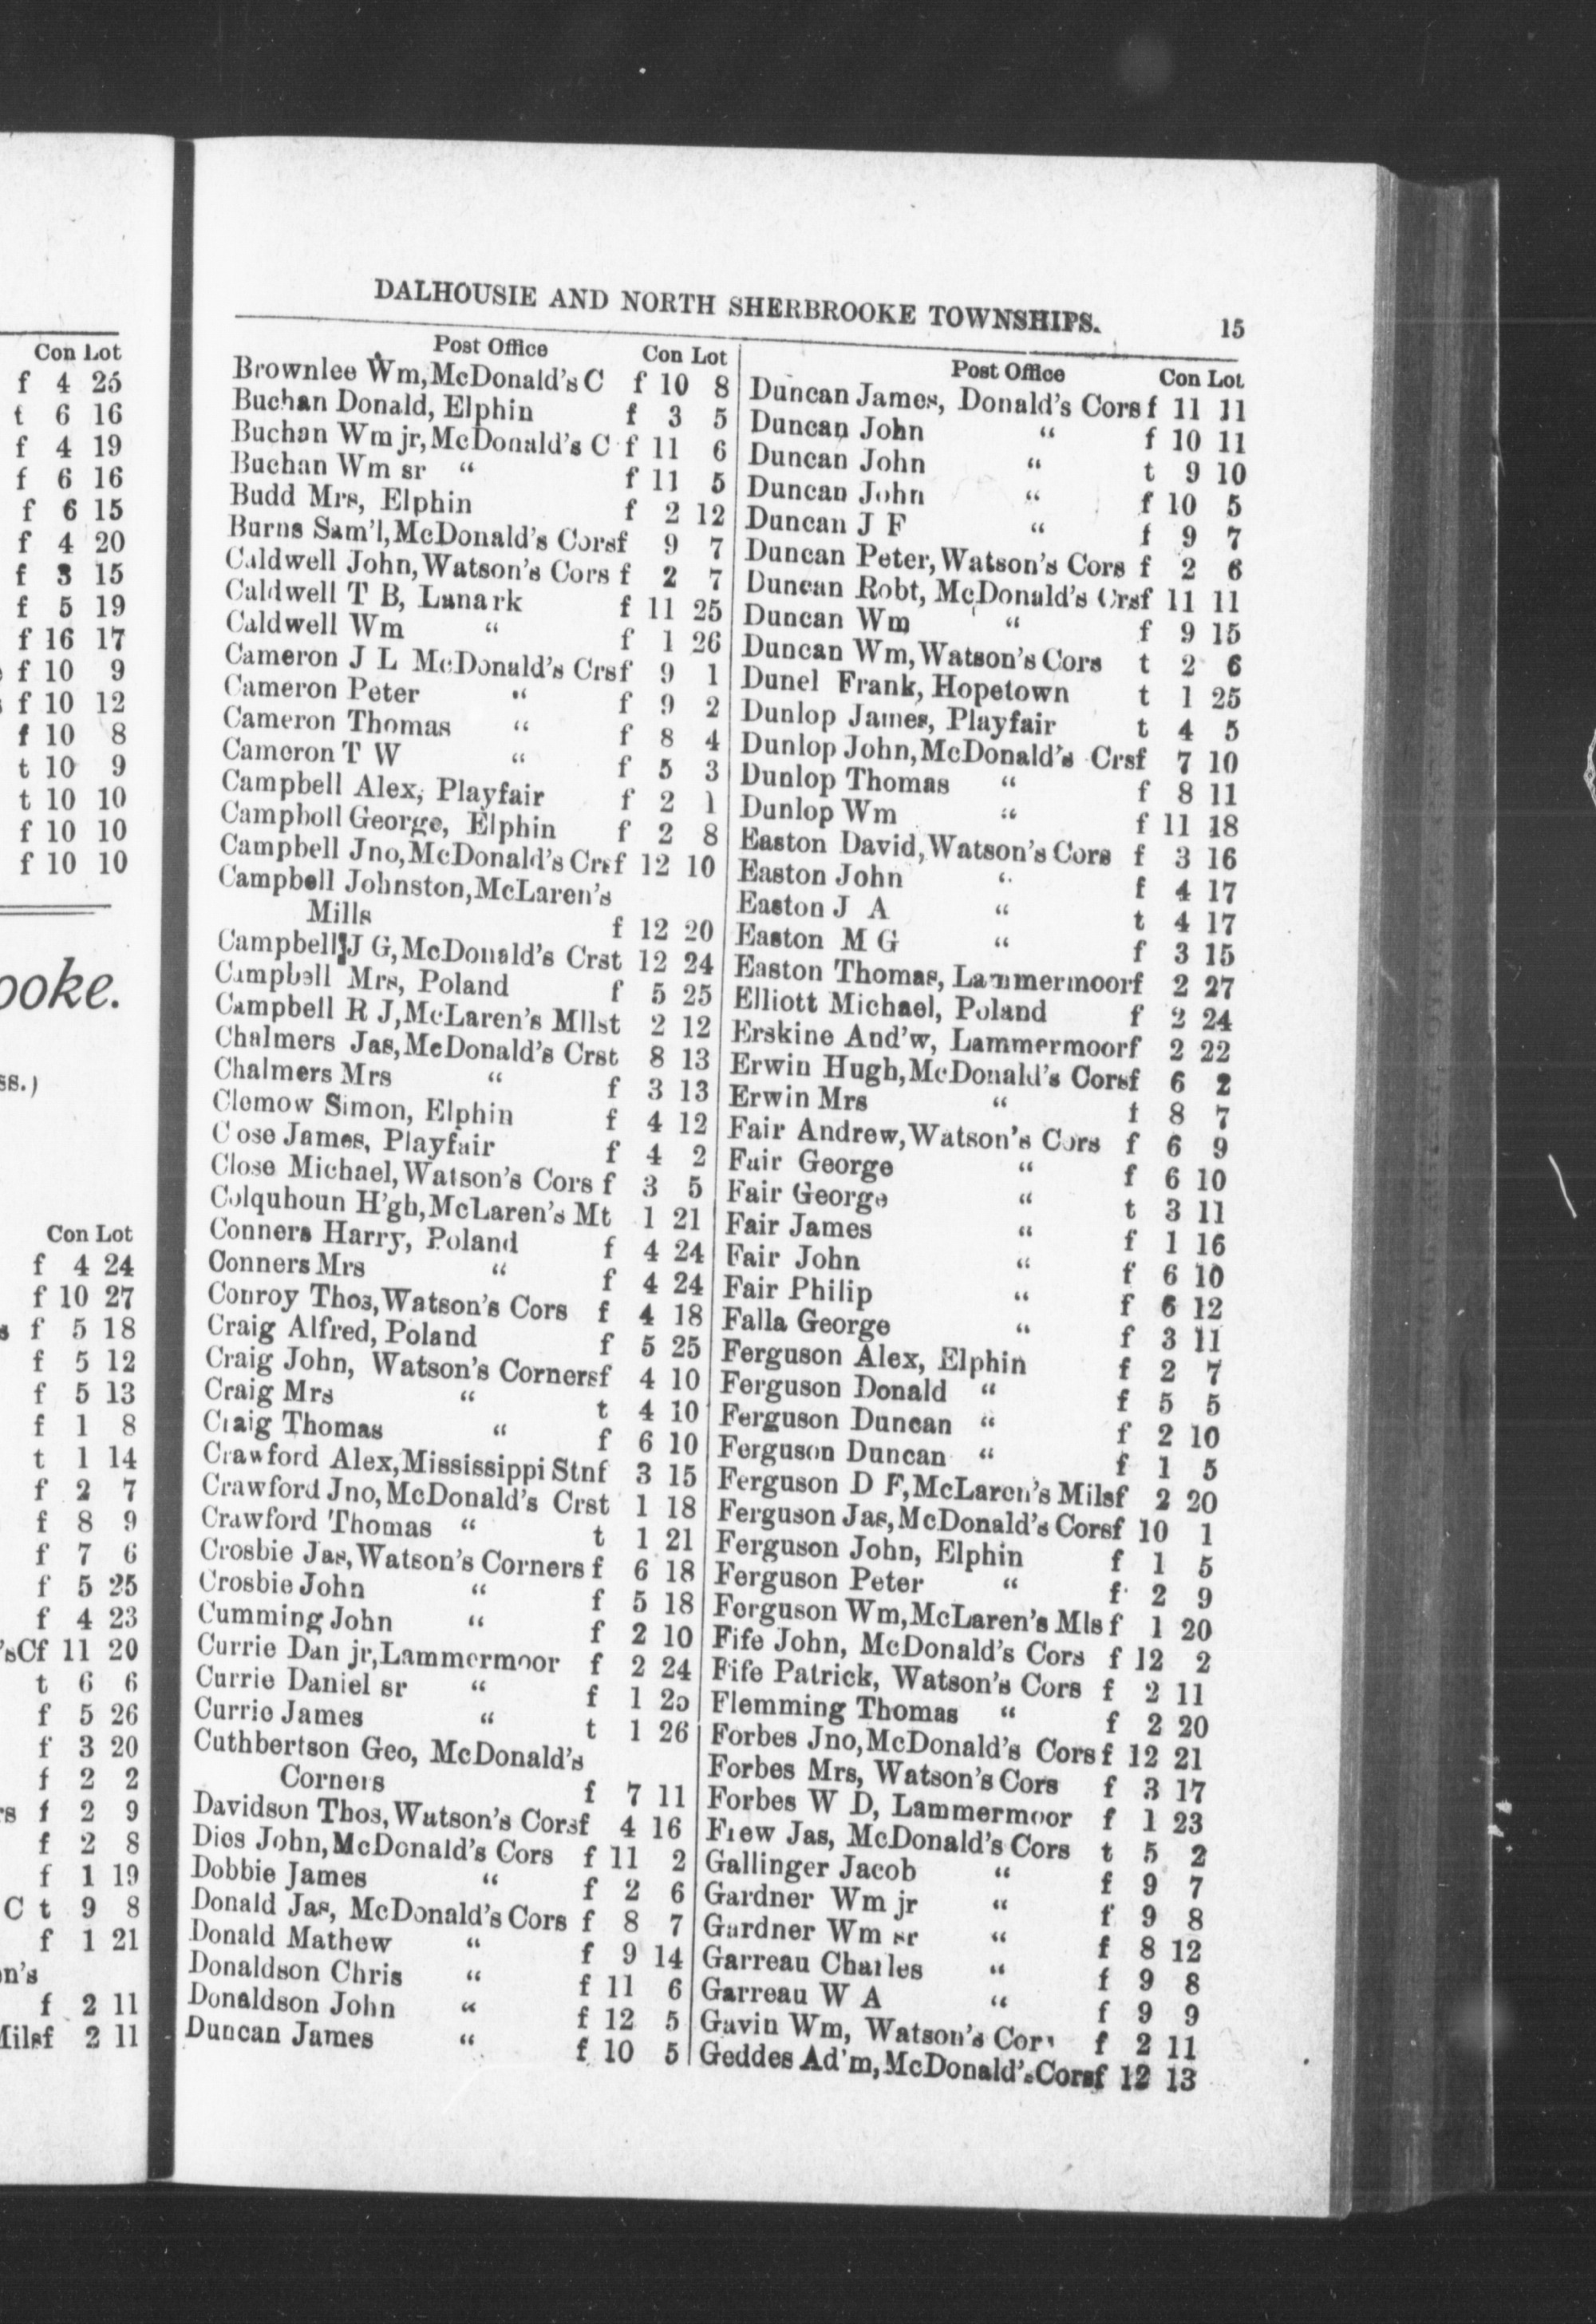 Con Lot
f 4 25
t 6 16
f 4 19
f 6 16
f 6 15
f 4 20
f 3 15
f 5 19
f 16 17
f 10 9
f 10 12
f 10 8
t 10 9
t 10 10
f 10 10
f 10 10
ooke.
ss.)
Con Lot
f 4 24
f 10 27
s f 5 18
f 5 12
f 5 13
f 1 8
t 1 14
f 2 7
f 8 9
f 7 6
f 5 25
f 4 23
'sCf 11 20
t 6 6
f 5 26
f 3 20
f 2 2
rs f 2 9
f 2 8
f 1 19
C t 9 8
f 1 21
on's
f 2 11
Milsf 2 11
DALHOUSIE AND NORTH SHERBROOKE TOWNSHIPS. 15
Post Office Con Lot
Brownlee Wm, McDonald's C f 10 8
Buchan Donald, Elphin f 3 5
Buchan Wm jr, McDonald's C f 11 6
Buchan Wm sr “ f 11 5
Budd Mrs, Elphin f 2 12
Burns Sam'l, McDonald's Corsf 9 7
Caldwell John, Watson's Cors f 2 7
Caldwell T B, Lanark f 11 25
Caldwell Wm “ f 1 26
Cameron J L McDonald's Crsf 9 1
Cameron Peter “ f 9 2
Cameron Thomas “ f 8 4
Cameron T W “ f 5 3
Campbell Alex, Playfair f 2 1
Campboll George, Elphin f 2 8
Campbell Jno, McDonald's Crsf 12 10
Campbell Johnston, McLaren's
Mills f 12 20
Campbell J G, McDonald's Crst 12 24
Campbell Mrs, Poland f 5 25
Campbell R J, McLaren's Mllst 2 12
Chalmers Jas, McDonald's Crst 8 13
Chalmers Mrs “ f 3 13
Clemow Simon, Elphin f 4 12
C ose James, Playfair f 4 2
Close Michael, Watson's Cors f 3 5
Colquhoun H'gh, McLaren's Mt 1 21
Conners Harry, Poland f 4 24
Conners Mrs “ f 4 24
Conroy Thos, Watson's Cors f 4 18
Craig Alfred, Poland f 5 25
Craig John, Watson's Cornersf 4 10
Craig Mrs “ t 4 10
Craig Thomas “ f 6 10
Crawford Alex, Mississippi Stnf 3 15
Crawford Jno, McDonald's Crst 1 18
Crawford Thomas “ t 1 21
Crosbie Jas, Watson's Corners f 6 18
Crosbie John “ f 5 18
Cumming John “ f 2 10
Currie Dan jr, Lammermoor f 2 24
Currie Daniel sr “ f 1 25
Currie James “ t 1 26
Cuthbertson Geo, McDonald's
Corners f 7 11
Davidson Thos, Watson's Corsf 4 16
Dies John, McDonald's Cors f 11 2
Dobbie James “ f 2 6
Donald Jas, McDonald's Cors f 8 7
Donald Mathew “ f 9 14
Donaldson Chris “ f 11 6
Donaldson John “ f 12 5
Duncan James “ f 10 5
Post Office Con Lot
Duncan James, Donald's Cors f 11 11
Duncan John “ f 10 11
Duncan John “ t 9 10
Duncan John “ f 10 5
Duncan J F “ f 9 7
Duncan Peter, Watson's Cors f 2 6
Duncan Robt, McDonald's Crsf 11 11
Duncan Wm “ f 9 15
Duncan Wm, Watson's Cors t 2 6
Dunel Frank, Hopetown t 1 25
Dunlop James, Playfair t 4 5
Dunlop John, McDonald's Crsf 7 10
Dunlop Thomas “ f 8 11
Dunlop Wm “ f 11 18
Easton David, Watson's Cors f 3 16
Easton John “ f 4 17
Easton J A “ t 4 17
Easton M G “ f 3 15
Easton Thomas, Lammermoorf 2 27
Elliott Michael, Poland f 2 24
Erskine And'w, Lammermoorf 2 22
Erwin Hugh, McDonald's Corsf 6 2
Erwin Mrs “ f 8 7
Fair Andrew, Watson's Cors f 6 9
Fair George “ f 6 10
Fair George “ t 3 11
Fair James “ f 1 16
Fair John “ f 6 10
Fair Philip “ f 6 12
Falla George “ f 3 11
Ferguson Alex, Elphin f 2 7
Ferguson Donald “ f 5 5
Ferguson Duncan “ f 2 10
Ferguson Duncan “ f 1 5
Ferguson D F, McLaren's Milsf 2 20
Ferguson Jas, McDonald's Corsf 10 1
Ferguson John, Elphin f 1 5
Ferguson Peter “ f 2 9
Ferguson Wm, McLaren's Mls f 1 20
Fife John, McDonald's Cors f 12 2
Fife Patrick, Watson's Cors f 2 11
Flemming Thomas “ f 2 20
Forbes Jno, McDonald's Cors f 12 21
Forbes Mrs, Watson's Cors f 3 17
Forbes W D, Lammermoor f 1 23
Frew Jas, McDonald's Cors t 5 2
Gallinger Jacob “ f 9 7
Gardner Wm jr “ f 9 8
Gardner Wm sr “ f 8 12
Garreau Charles “ f 9 8
Garreau W A “ f 9 9
Gavin Wm, Watson's Cors f 2 11
Geddes Ad'm, McDonald's Corsf 12 13